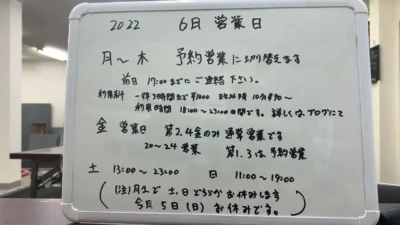 2022 6月 営業日
月〜木 予約営業に切り替えます
前日 17:00までにご連絡下さい。
利用料 一律3時間まで¥1000 以降 10分¥50〜
利用時間 18:00〜23:00の間です。詳しくはブログにて
金 営業日 第2.4金のみ 通常営業です
20〜24 営業 第1.3は予約営業
土 13:00〜23:00 日 11:00〜19:00
(注)月2で土、日どちらかお休みします
今月5日(日)お休みです。